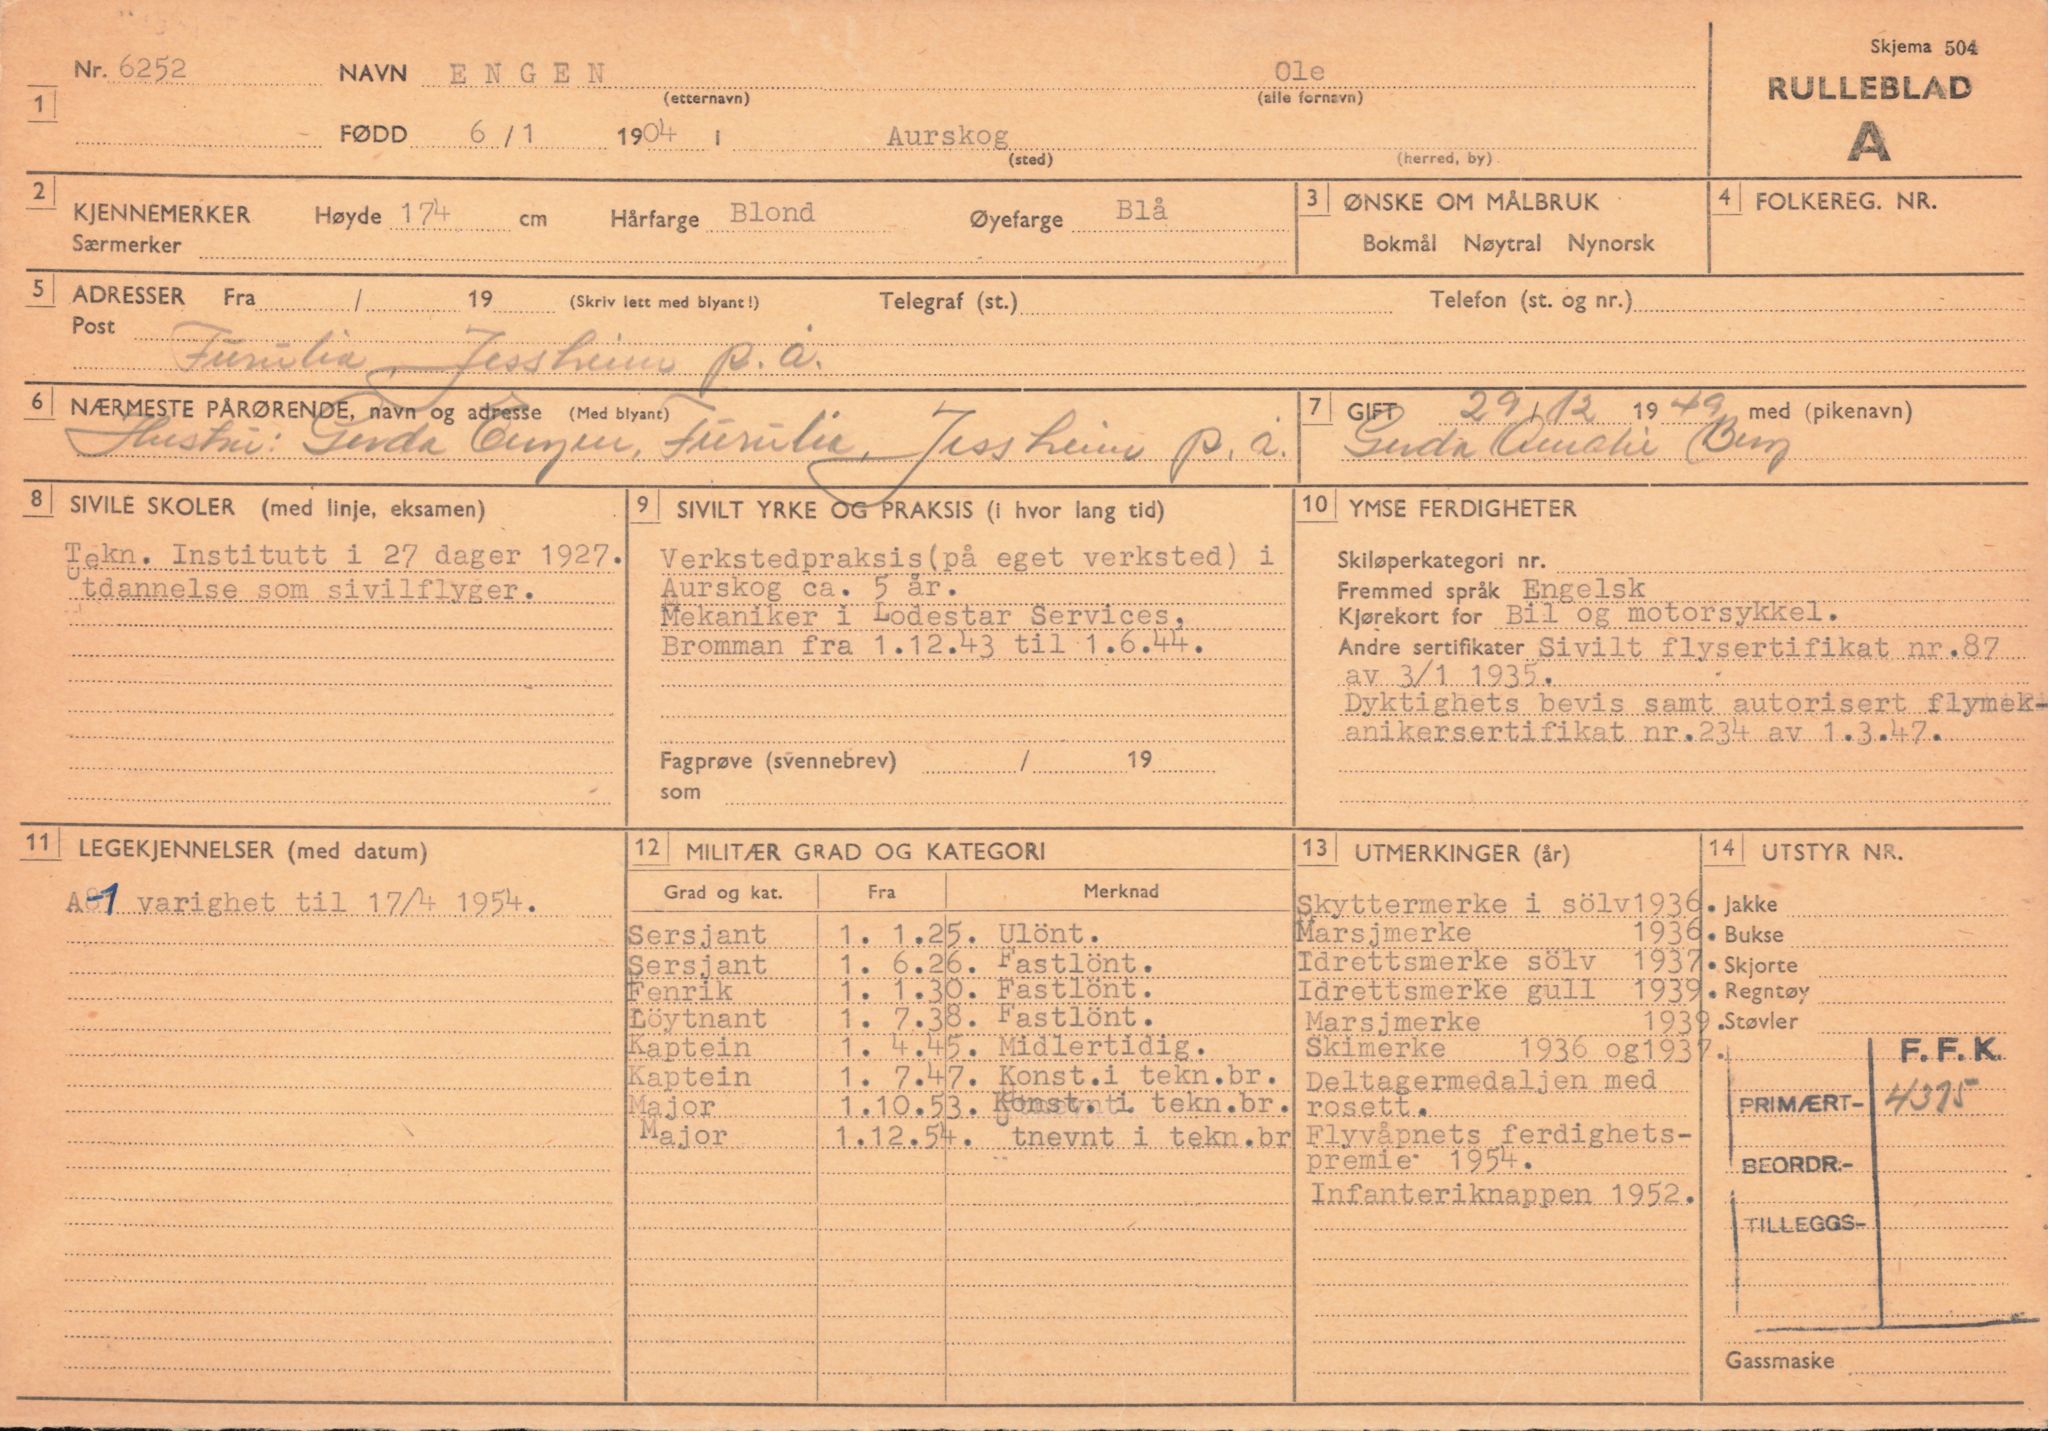 Skjema 504
RULLEBLAD
A
1 Nr. 6252 NAVN ENGEN Ole
(etternavn) (alle fornavn)
FØDD 6 / 1 1904 i Aurskog
(sted) (herred, by)
2 KJENNEMERKER Høyde 174 cm Hårfarge Blond Øyefarge Blå
Særmerker
3 ØNSKE OM MÅLBRUK
Bokmål Nøytral Nynorsk
4 FOLKEREG. NR.
5 ADRESSER Fra / 19 (Skriv lett med blyant!) Telegraf (st.) Telefon (st. og nr.)
Post
Furulia, Jessheim p.å.
6 NÆRMESTE PÅRØRENDE, navn og adresse (Med blyant)
Hustru: Gerda Engen, Furulia, Jessheim p.å.
7 GIFT 29 / 12 1949 med (pikenavn)
Gerda Amalie Berg
8 SIVILE SKOLER (med linje, eksamen)
Tekn. Institutt i 27 dager 1927.
Utdannelse som sivilflyger.
9 SIVILT YRKE OG PRAKSIS (i hvor lang tid)
Verkstedpraksis(på eget verksted) i
Aurskog ca. 5 år.
Mekaniker i Lodestar Services,
Bromman fra 1.12.43 til 1.6.44.
Fagprøve (svennebrev) / 19
som
10 YMSE FERDIGHETER
Skiløperkategori nr.
Fremmed språk Engelsk
Kjørekort for Bil og motorsykkel.
Andre sertifikater Sivilt flysertifikat nr.87
av 3/1 1935.
Dyktighets bevis samt autorisert flymek-
anikersertifikat nr.234 av 1.3.47.
11 LEGEKJENNELSER (med datum)
A-1 varighet til 17/4 1954.
12 MILITÆR GRAD OG KATEGORI
Grad og kat. Fra Merknad
Sersjant 1. 1.25. Ulönt.
Sersjant 1. 6.26. Fastlönt.
Fenrik 1. 1.30. Fastlönt.
Löytnant 1. 7.38. Fastlönt.
Kaptein 1. 4.45. Midlertidig.
Kaptein 1. 7.47. Konst.i tekn.br.
Major 1.10.53. Konst. i tekn.br.
Major 1.12.54. Utnevnt i tekn.br
13 UTMERKINGER (år)
Skyttermerke i sölv1936.
Marsjmerke 1936.
Idrettsmerke sölv 1937.
Idrettsmerke gull 1939.
Marsjmerke 1939.
Skimerke 1936 og1937.
Deltagermedaljen med
rosett.
Flyvåpnets ferdighets-
premie 1954.
Infanteriknappen 1952.
14 UTSTYR NR.
Jakke
Bukse
Skjorte
Regntøy
Støvler
F. F. K.
PRIMÆRT- 4375
BEORDR.-
TILLEGGS-
Gassmaske